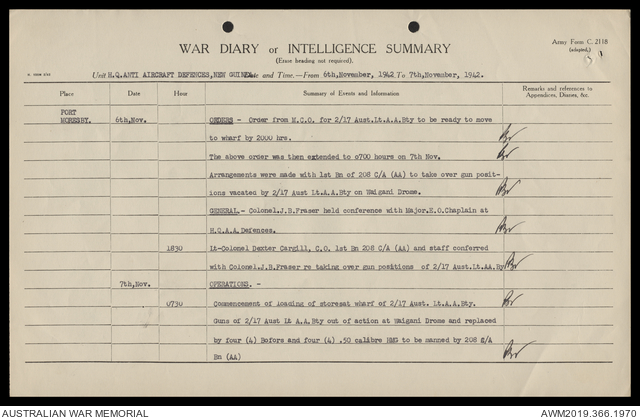 Army Form C. 2118
(adapted.)
WAR DIARY or INTELLIGENCE SUMMARY
(Erase heading not required).
Unit H.Q.ANTI AIRCRAFT DEFENCES,NEW GUINEA Date and Time.—From 6th,November, 1942 To 7th,November, 1942.
Place Date Hour Summary of Events and Information Remarks and references to Appendices, Diaries, &c.
PORT MORESBY. 6th,Nov. ORDERS - Order from M.C.O. for 2/17 Aust.Lt.A.A.Bty to be ready to move
to wharf by 2000 hrs.
The above order was then extended to 0700 hours on 7th Nov.
Arrangements were made with 1st Bn of 208 C/A (AA) to take over gun posit-
ions vacated by 2/17 Aust Lt.A.A.Bty on Waigani Drome.
GENERAL.- Colonel.J.B.Fraser held conference with Major.E.O.Chaplain at
H.Q.A.A.Defences.
1830 Lt-Colonel Dexter Cargill, C.O. 1st Bn 208 C/A (AA) and staff conferred
with Colonel.J.B.Fraser re taking over gun positions of 2/17 Aust.Lt.AA.By
7th,Nov. OPERATIONS. -
0730 Commencement of loading of storesat wharf of 2/17 Aust. Lt.A.A.Bty.
Guns of 2/17 Aust Lt A.A.Bty out of action at Waigani Drome and replaced
by four (4) Bofors and four (4) .50 calibre HMG to be manned by 208 C/A
Bn (AA)
AUSTRALIAN WAR MEMORIAL AWM2019.366.1970